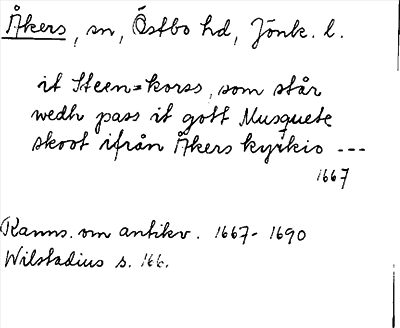 Åkers, sn, Östbo hd, Jönk. l.
it Steen=korss, som står
wedh pass it gott Musquete
skoot ifrån Åkers kyrkio ---
1667
Ranns. om antikv. 1667-1690
Wilstadius s. 166.